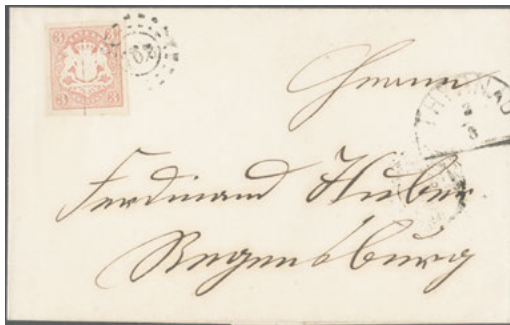 3 3
3 3
Herrn
Ferdinand Huber
Regensburg